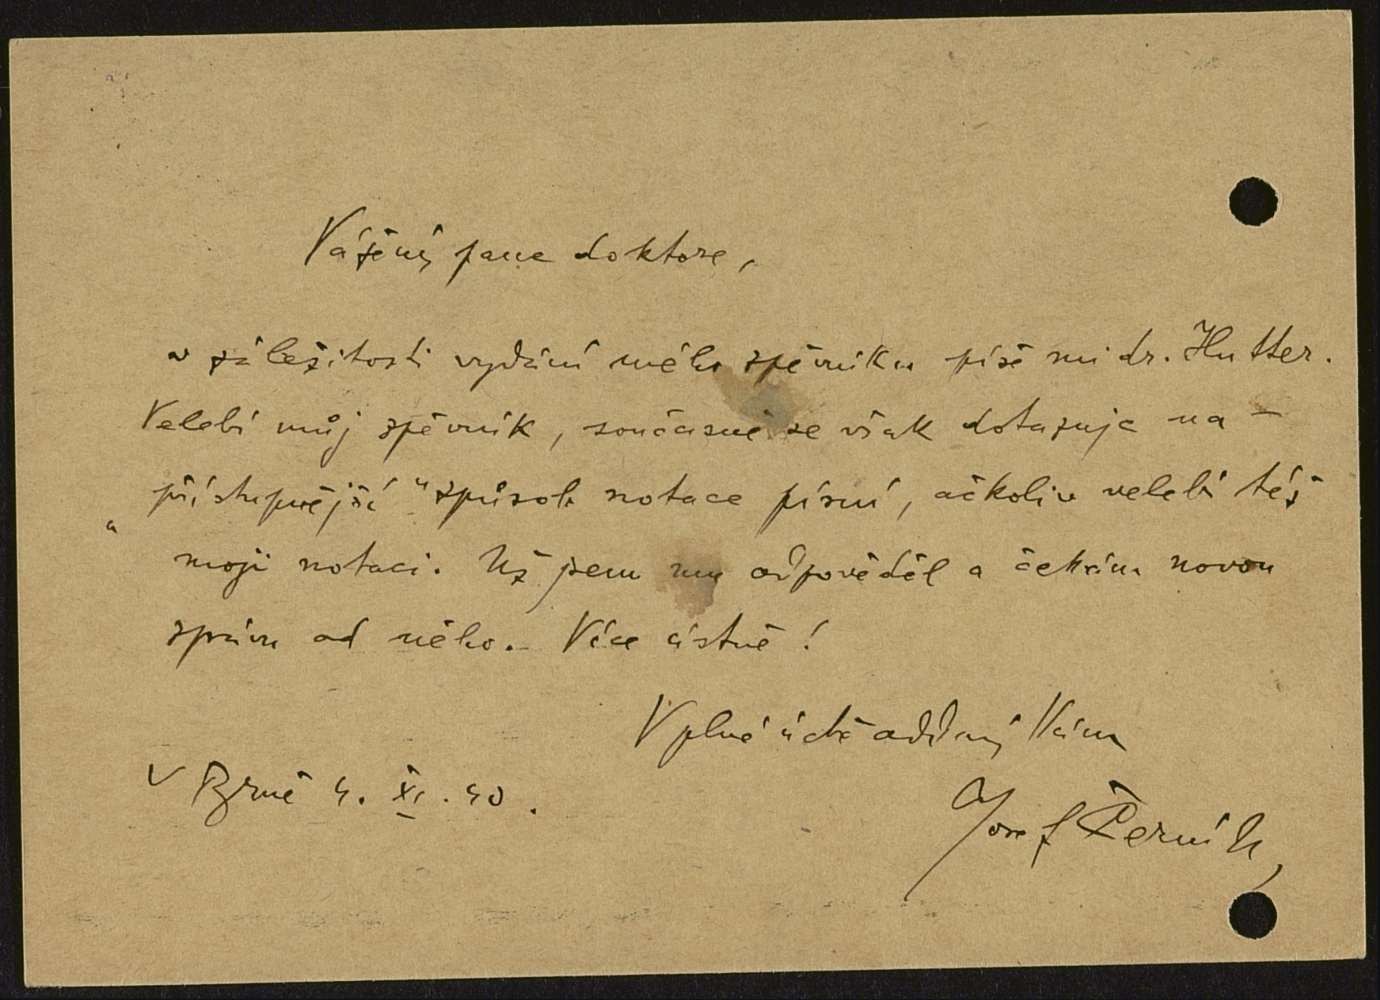 Vážený pane doktore,
v záležitosti vydání mého zpěvníku píše mi dr. Hutter.
Velebí můj zpěvník, současně se však dotazuje na
„přístupnější“ způsob notace písní, ačkoliv velebí též
moji notaci. Už jsem mu odpověděl a čekám novou
zprávu od něho. Více ústně!
V plné úctě oddaný Vám
V Brně 4. XI. 40.
Josef Černík,